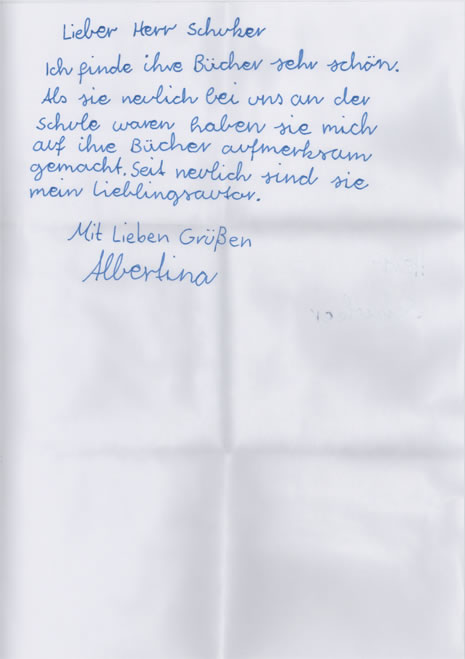 Lieber Herr Schuker
Ich finde ihre Bücher sehr schön.
Als sie neulich bei uns an der
Schule waren haben sie mich
auf ihre Bücher aufmerksam
gemacht. Seit neulich sind sie
mein Lieblingsautor.
Mit Lieben Grüßen
Albertina